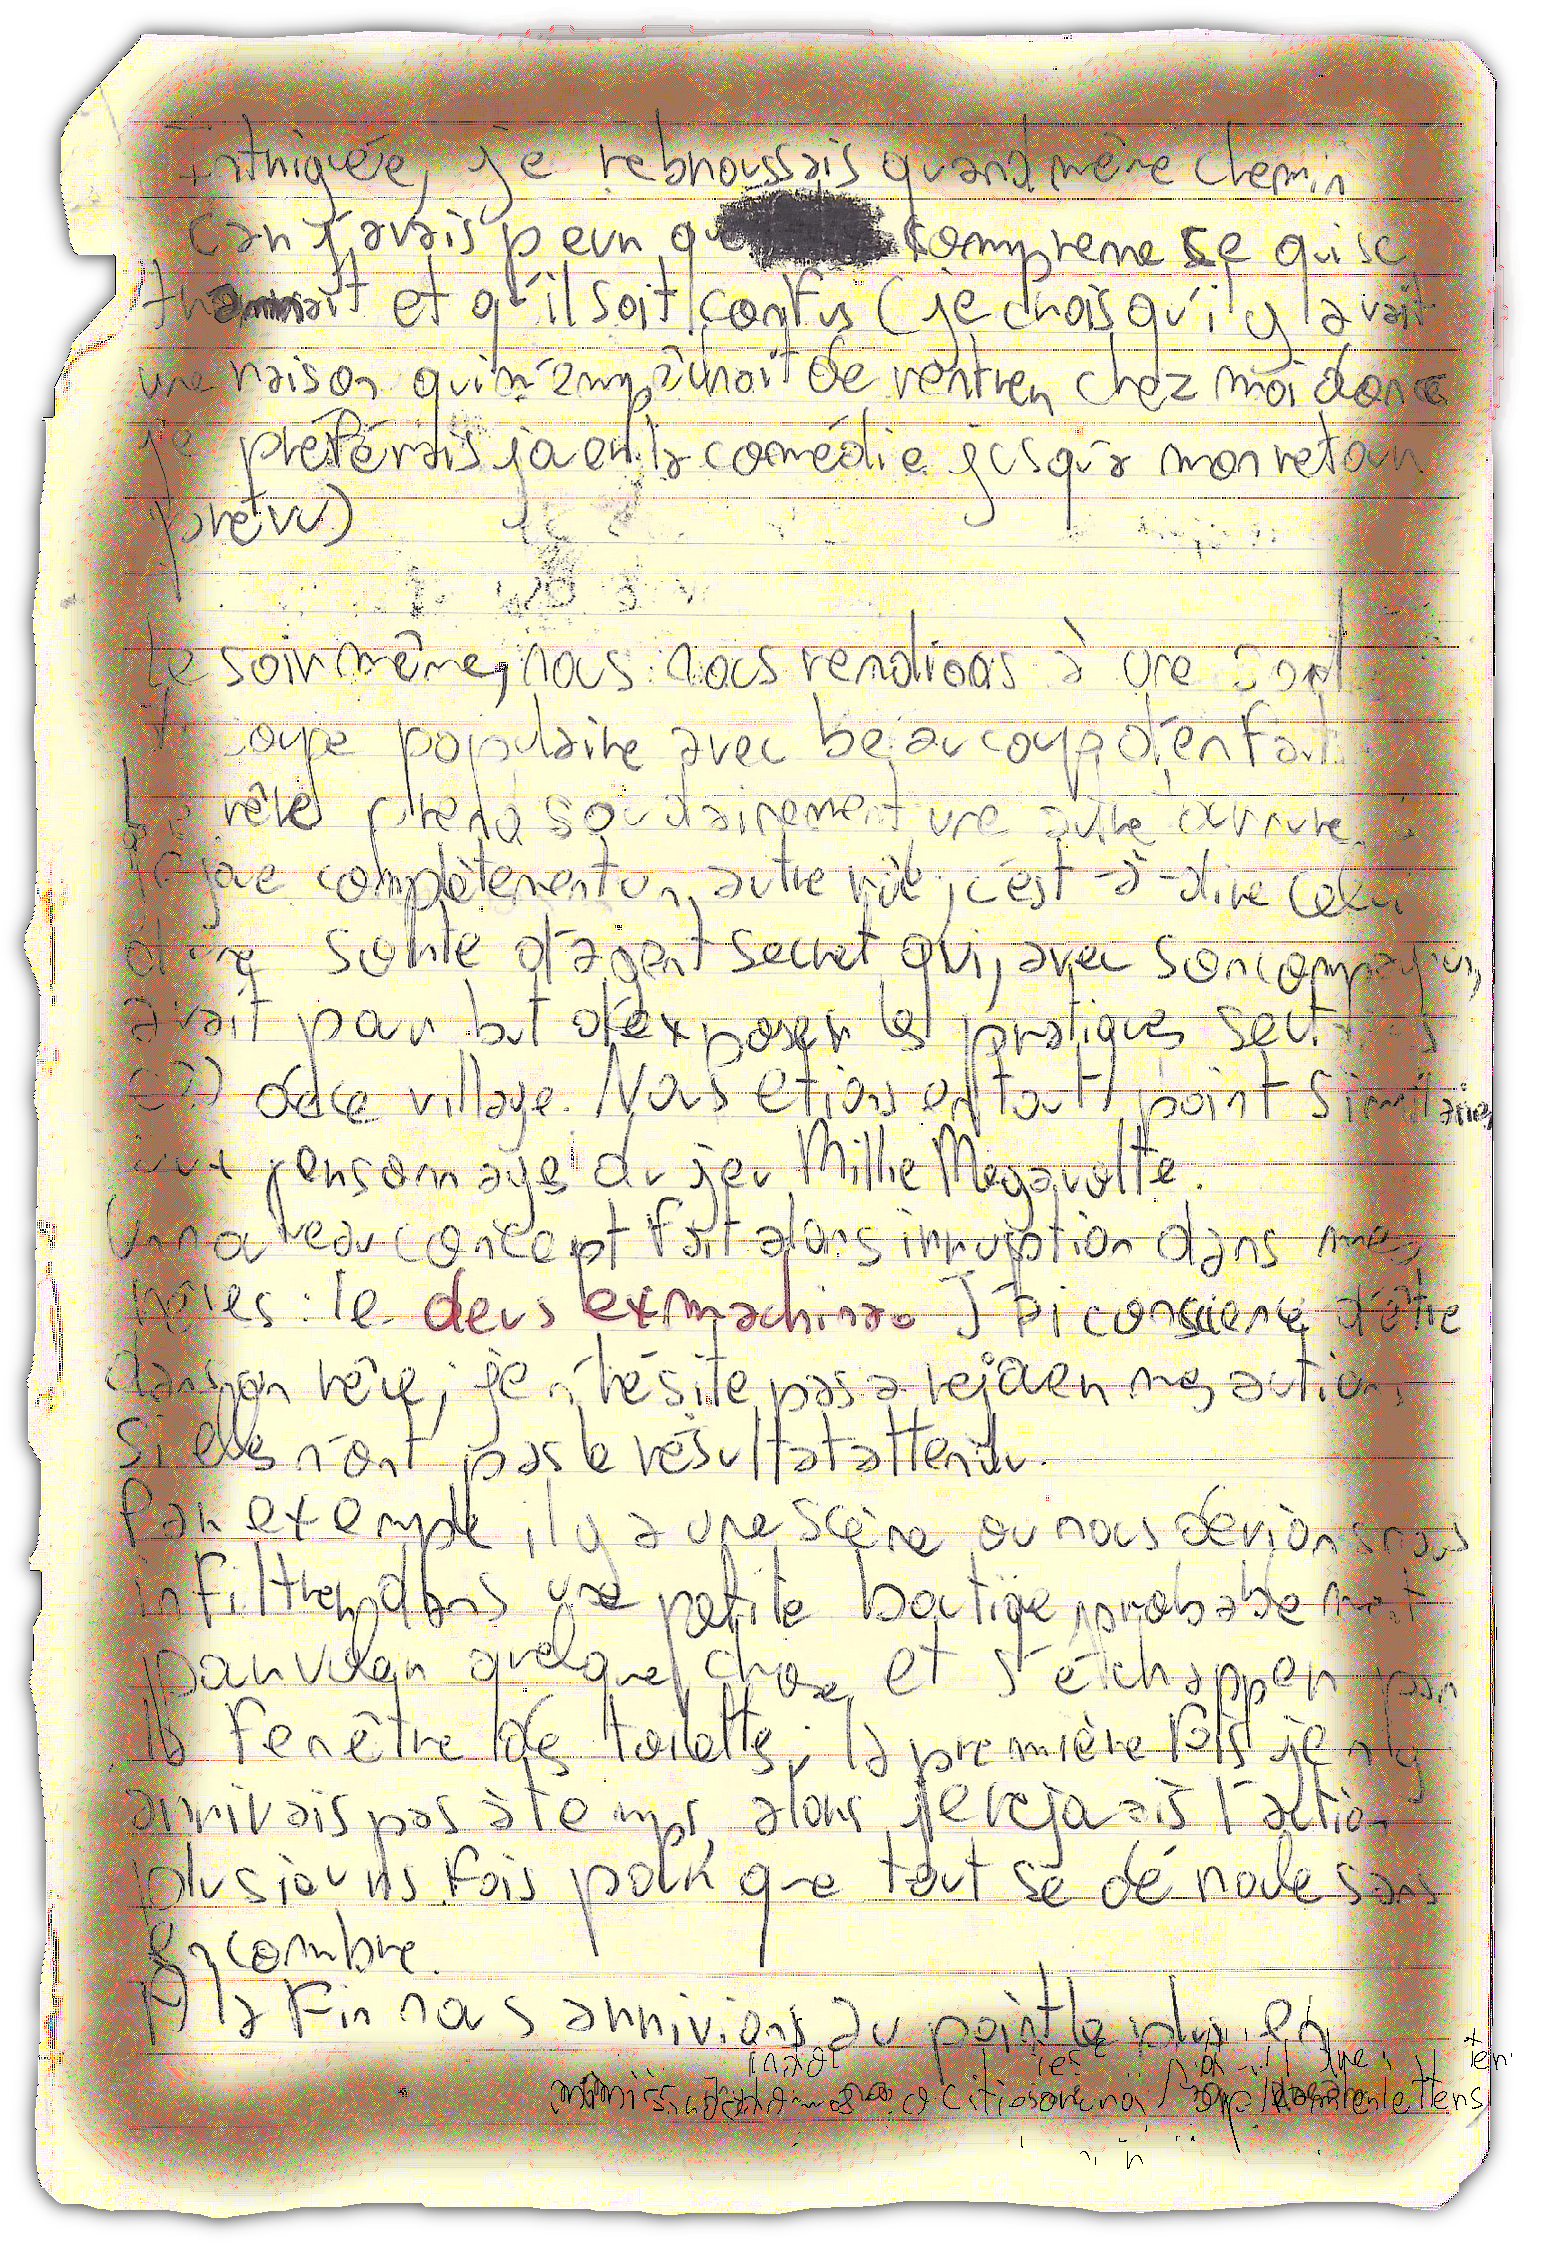 Intriguée, je rebroussais quand même chemin
car j'avais peur que comprenne ce qui se
tramait et qu'il soit confus (je crois qu'il y avait
une raison qui m'empêchait de rentrer chez moi donc
je préférais jouer la comédie jusqu'à mon retour
prévu)
Le soir même, nous nous rendions à une
soupe populaire avec beaucoup d'enfants
Le rêve prend soudainement une autre
Je joue complètement un autre rôle, c'est-à-dire celui
d'une sorte d'agent secret qui, avec son compagnon,
avait pour but d'exposer les pratiques
(?) de ce village. Nous etions en tout point similaires
aux personnages du jeu Millie Megavolte.
Un nouveau concept fait alors irruption dans mes
rêves : le deus ex machina. J'ai conscience d'être
dans un rêve, je n'hésite pas a rejouer mes actions
si elles n'ont pas le résultat attendu.
Par exemple, il y a une scène ou nous devions nous
infiltrer dans une petite boutique, probablement
pour voler quelque chose, et s'échapper par
la fenêtre des toilettes ; la première fois je n'y
arrivais pas à temps, alors je rejouais l'action
plusieurs fois pour que tout se dénoule sans
encombre.
A la fin nous arrivions au point le plus en